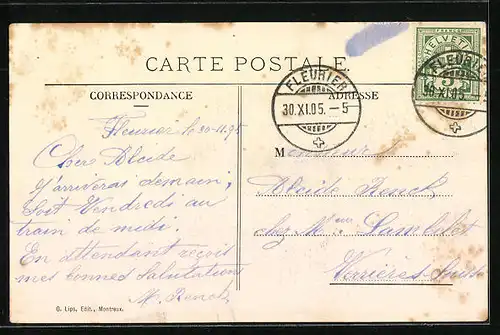 CARTE POSTALE.
CORRESPONDANCE
ADRESSE
HELVETIA
5
FLEURIER
30.XI.05.-5
FLEURIER
30.XI.05.
Fleurier le 30-11.95
Chère Alcide
J'arriverai demain,
soit Vendredi au
train de midi.
En attendant reçois
mes bonnes salutations
Monsieur
Alcide Renck,
chez Mme Lambelet
Verrières-Suisse
G. Lips, Edit., Montreux.